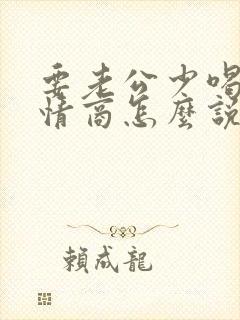 要老公少喝
情商怎麼說
賴成龍